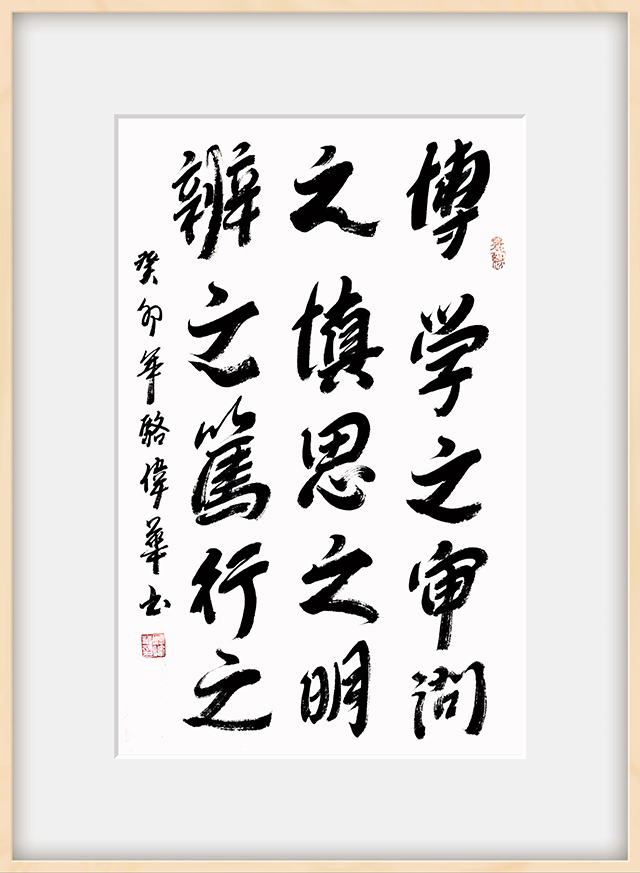 博学之审问
之慎思之明
辨之篤行之
癸卯年駱偉華书